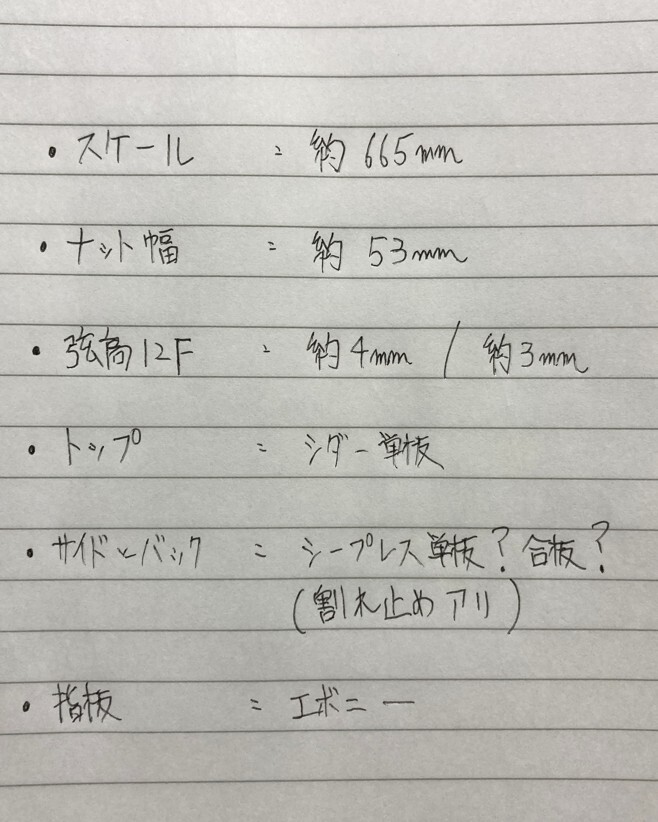 ・スケール : 約 665mm
・ナット幅 : 約 53mm
・弦高12F : 約4mm / 約3mm
・トップ : シダー単板
・サイドとバック : シープレス単板?合板?
(割れ止めアリ)
・指板 : エボニー